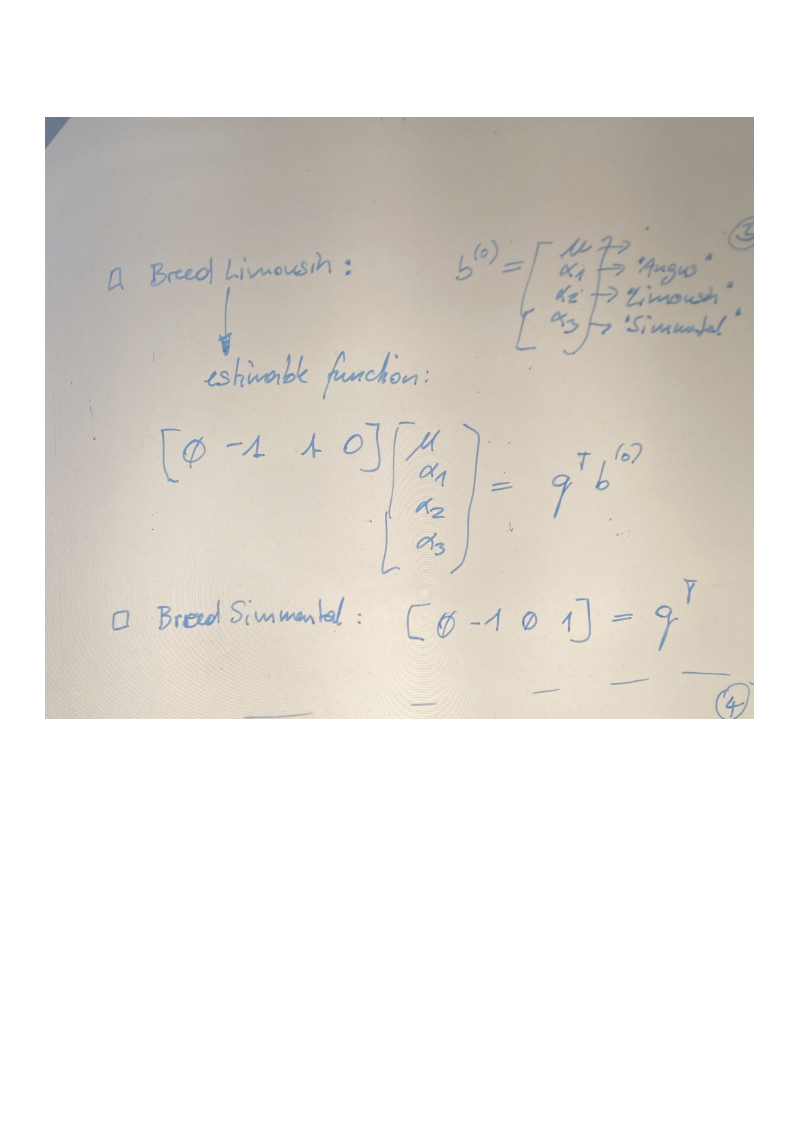 ③
□ Breed Limousin :
b^(0) = [ μ →
α1 → "Angus"
α2 → "Limousin"
α3 ] → "Simmental"
estimable function:
[ ∅ -1 1 0 ] [ μ
α1
α2
α3 ] = q^T b^(0)
□ Breed Simmental : [ ∅ -1 ∅ 1 ] = q^T
④